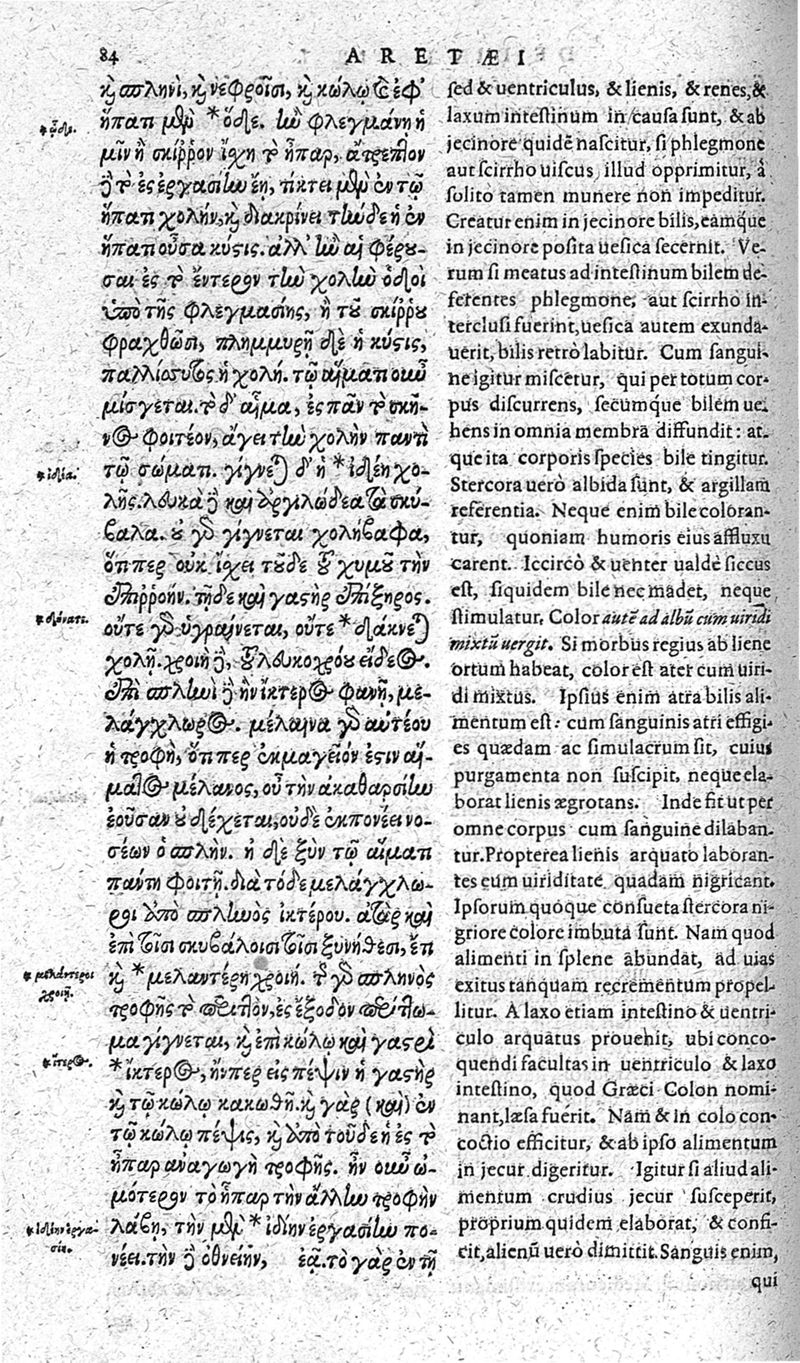 84
ARETÆI
κ̀ σπληνὶ, κ̀ νεφροῖσι, κ̀ κώλῳ. τὸ ἐφ'
ἥπατι μὲν *ὅδε. ἢν φλεγμάνη ἡ
μῖν ἢ σκίῤῥον ἴχῃ τὸ ἧπαρ, ἄτρεπτον
δὲ τὸ ἐς ἐργασίην ἔῃ, τίκτει μὲν ἐν τῷ
ἥπατι χολήν, κ̀ διακρίνει τὴν δὲ ἡ ἐν
ἥπατι οὖσα κύςις. ἀλλ' ἢν αἱ φέρου-
σαι ἐς τὸ ἔντερον τὴν χολὴν ὁδοὶ
ὑπὸ τῆς φλεγμασίης, ἢ τοῦ σκίῤῥου
φραχθῶσι, πλημμυρῇ δὲ ἡ κύςις,
παλλίοσυτος ἡ χολή. τῷ αἵματι οὖν
μίσγεται. τὸ δ' αἷμα, ἐς πᾶν τὸ σκῆ-
νος φοιτέον, ἄγει τὴν χολὴν παντὶ
τῷ σώματι. γίγνεται δ' ἡ *ἰδέη χο-
λῆς. λευκὰ δὲ καὶ ἀργιλώδεα τὰ σκύ-
βαλα. οὐ γὰρ γίγνεται χολήβαφα,
ὅτιπερ οὐκ ἴχει τοῦδε τοῦ χυμοῦ τὴν
ἐπιῤῥοήν. τῇδε καὶ γαςὴρ ἐπίξηρος.
οὔτε γὰρ ὑγραίνεται, οὔτε *δάκνεται
χολῇ. χροιὴ δὲ, τοῦ λευκοχρόου εἶδος.
ἐπὶ σπληνὶ δὲ ἢν ἴκτερος φανῇ, με-
λάγχλωρος. μέλαινα γὰρ αὐτέου
ἡ τροφὴ, ὅτιπερ ἐκμαγεῖόν ἐςιν αἵ-
ματος μέλανος, οὗ τὴν ἀκαθαρσίην
ἐοῦσαν οὐ δέχεται, οὐδὲ ἐκπονέει νο-
σέων ὁ σπλήν. ἡ δὲ ξὺν τῷ αἵματι
πάντη φοιτῇ. διὰ τόδε μελάγχλω-
ροι ἀπὸ σπληνὸς ἰκτέρου. ἀτὰρ καὶ
ἐπὶ τοῖσι σκυβάλοισι τοῖσι ξυνήθεσι, ἔπι
κ̀ *μελαντέρη χροιή. τὸ γὰρ σπληνὸς
τροφῆς τὸ περιττὸν, ἐς ἔξοδον περίττω-
μα γίγνεται, κ̀ ἐπὶ κώλῳ καὶ γαςρὶ
*ἴκτερος, ἤνπερ εἰς πέψιν ἡ γαςὴρ
κ̀ τῷ κώλῳ κακωθῇ. κ̀ γὰρ (καὶ) ἐν
τῷ κώλῳ πέψις, κ̀ ἀπὸ τοῦδε ἡ ἐς τὸ
ἧπαρ ἀναγωγὴ τροφῆς. ἢν οὖν ὠ-
μότερον τὸ ἧπαρ τὴν ἄλλην τροφὴν
λάβῃ, τὴν μὲν *ἰδίην ἐργασίην πο-
νέει. τὴν δὲ ὀθνείην, ἐᾷ. τὸ γὰρ ἐν τῇ
*ὧδε.
*ἰδία.
*δύναται.
*μελάντεροι
χροιῇ.
*ἴτερος.
*ἰδίην ἐργα-
σίην.
sed & uentriculus, & lienis, & renes, &
laxum intestinum in causa sunt, & ab
jecinore quidẽ nascitur, si phlegmone
aut scirrho uiscus illud opprimitur, à
solito tamen munere non impeditur.
Creatur enim in jecinore bilis, eamq́ue
in jecinore posita uesica secernit. Ve-
rum si meatus ad intestinum bilem de-
ferentes phlegmone, aut scirrho in-
terclusi fuerint, uesica autem exunda-
uerit, bilis retrò labitur. Cum sangui-
ne igitur miscetur, qui per totum cor-
pus discurrens, secumq́ue bilem ue-
hens in omnia membra diffundit: at-
que ita corporis species bile tingitur.
Stercora uerò albida sunt, & argillam
referentia. Neque enim bile coloran-
tur, quoniam humoris eius affluxu
carent. Iccircò & uenter ualdè siccus
est, siquidem bile nec madet, neque
stimulatur. Color autẽ ad albũ cum uiridi
mixtũ uergit. Si morbus regius ab liene
ortum habeat, color est ater cum uiri-
di mixtus. Ipsius enim atra bilis ali-
mentum est: cum sanguinis atri effigi-
es quædam ac simulacrum sit, cuius
purgamenta non suscipit, neque ela-
borat lienis ægrotans. Inde fit ut per
omne corpus cum sanguine dilaban-
tur. Propterea lienis arquato laboran-
tes cum uiriditate quadam nigricant.
Ipsorum quoque consueta stercora ni-
griore colore imbuta sunt. Nam quod
alimenti in splene abundat, ad uias
exitus tanquam recrementum propel-
litur. A laxo etiam intestino & uentri-
culo arquatus prouenit, ubi conco-
quendi facultas in uentriculo & laxo
intestino, quod Græci Colon nomi-
nant, læsa fuerit. Nam & in colo con-
coctio efficitur, & ab ipso alimentum
in jecur digeritur. Igitur si aliud ali-
mentum crudius jecur susceperit,
proprium quidem elaborat, & confi-
cit, alienũ uerò dimittit. Sanguis enim,
qui